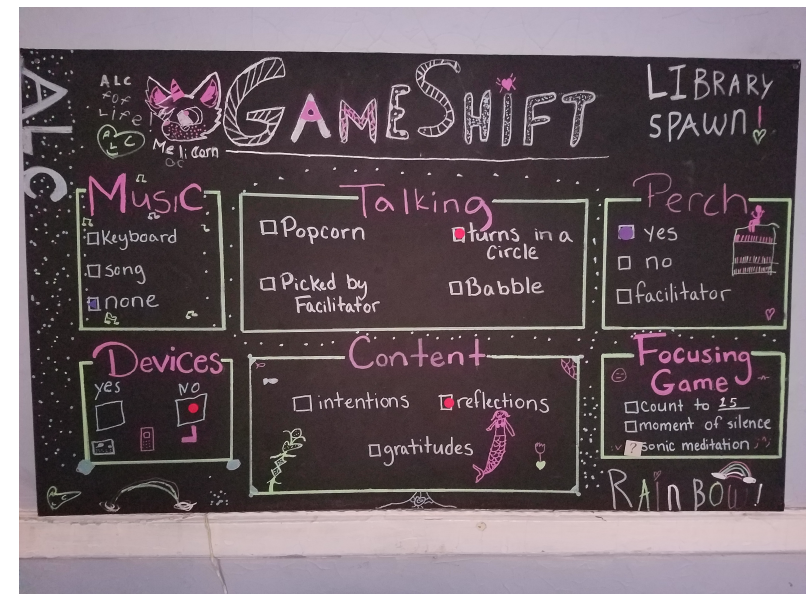 ALC
ALC
fox
Life!
ALC
Melicorn
GAMESHIFT
LIBRARY
SPAWN!
Music
Keyboard
song
none
Talking
Popcorn
turns in a
circle
Picked by
Facilitator
Babble
Perch
yes
no
facilitator
Devices
yes
NO
Content
intentions
reflections
gratitudes
Focusing
Game
count to 15
moment of silence
? sonic meditation
RAINBOW!